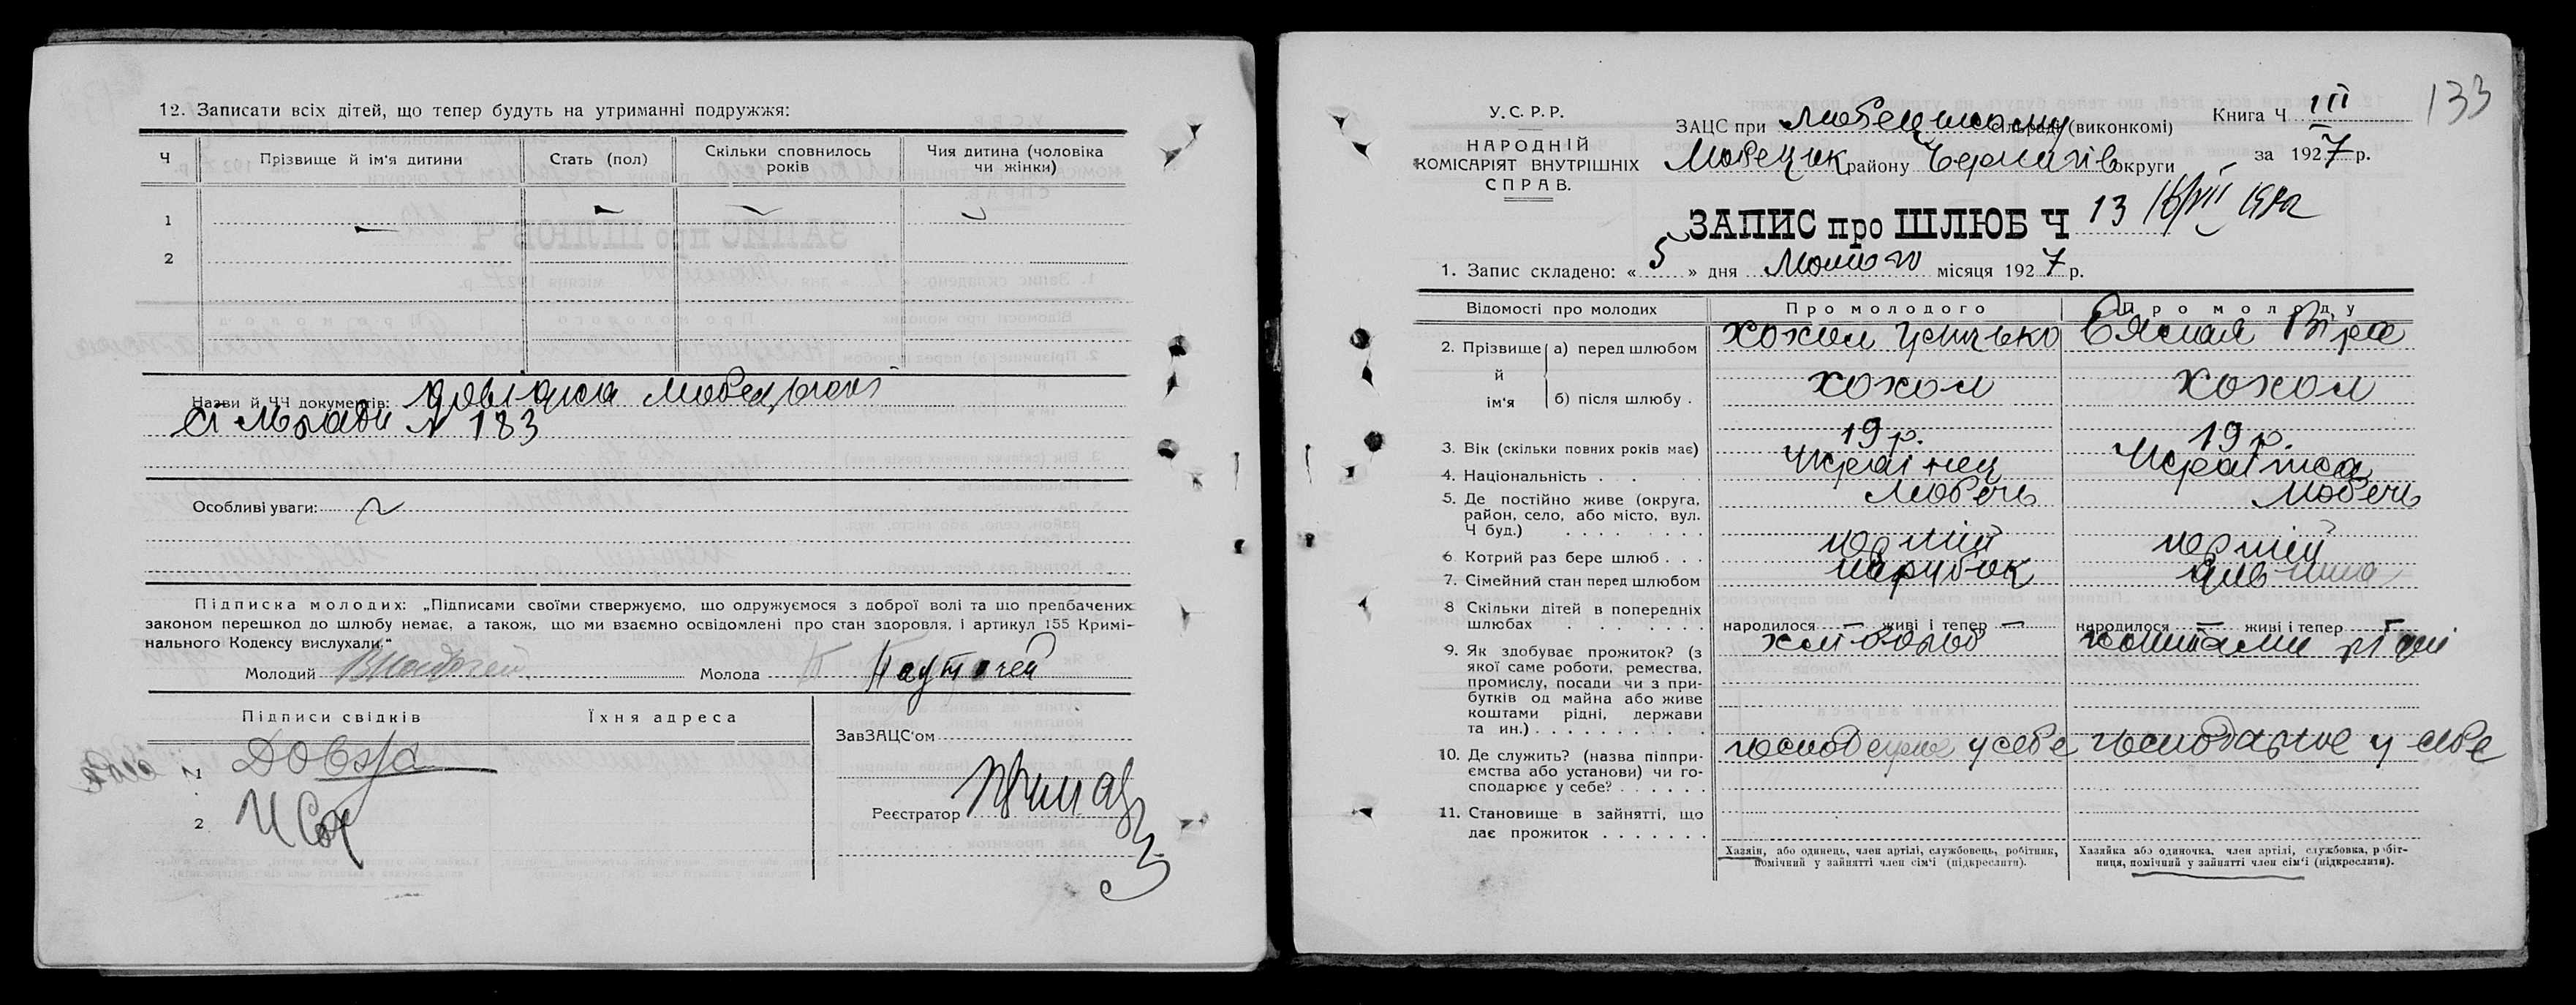 12. Записати всіх дітей, що тепер будуть на утриманні подружжя:
Ч
Прізвище й ім'я дитини
Стать (пол)
Скільки сповнилось років
Чия дитина (чоловіка чи жінки)
1
2
Назви й ЧЧ документів: Довідка Любецької
сільради № 183
Особливі уваги:
Підписка молодих: „Підписами своїми ствержуємо, що одружуємося з доброї волі та що предбачених
законом перешкод до шлюбу немає, а також, що ми взаємно освідомлені про стан здоровля, і артикул 155 Кримі-
нального Кодексу вислухали.“
Молодий
Молода
Підписи свідків
Їхня адреса
1
2
ЗавЗАЦС'ом
Реєстратор
133
У.С.Р.Р.
НАРОДНІЙ
КОМІСАРІЯТ ВНУТРІШНІХ
СПРАВ.
ЗАЦС при Любецькому сільраді (виконкомі)
Любецьк району Чернигів округи
Книга Ч III
за 1927 р.
ЗАПИС про ШЛЮБ Ч 13
1. Запис складено: « 5 » дня Лютого місяця 1927 р.
Відомості про молодих
Про молодого
Про молоду
2. Прізвище й ім'я
а) перед шлюбом
Хохол
Віра
б) після шлюбу
Хохол
Хохол
3. Вік (скільки повних років має)
19 р.
19 р.
4. Національність
Українец
Українка
5. Де постійно живе (округа,
район, село, або місто, вул.
Ч буд.)
Любеч
Любеч
6 Котрий раз бере шлюб
перший
перший
7. Сімейний стан перед шлюбом
парубок
дівчина
8 Скільки дітей в попередніх
шлюбах
народилося — живі і тепер —
народилося — живі і тепер —
9. Як здобуває прожиток? (з
якої саме роботи, ремества,
промислу, посади чи з при-
бутків од майна або живе
коштами рідні, держави
та ин.)
хлібороб
коштами рідні
10. Де служить? (назва підпри-
ємства або установи) чи го-
сподарює у себе?
господарює у себе
господарює у себе
11. Становище в зайнятті, що
дає прожиток
Хазяїн, або одинець, член артілі, службовець, робітник,
помічний у зайнятті член сім'ї (підкреслити).
Хазяйка або одиночка, член артілі, службовка, робіт-
ниця, помічний у зайнятті член сім'ї (підкреслити).